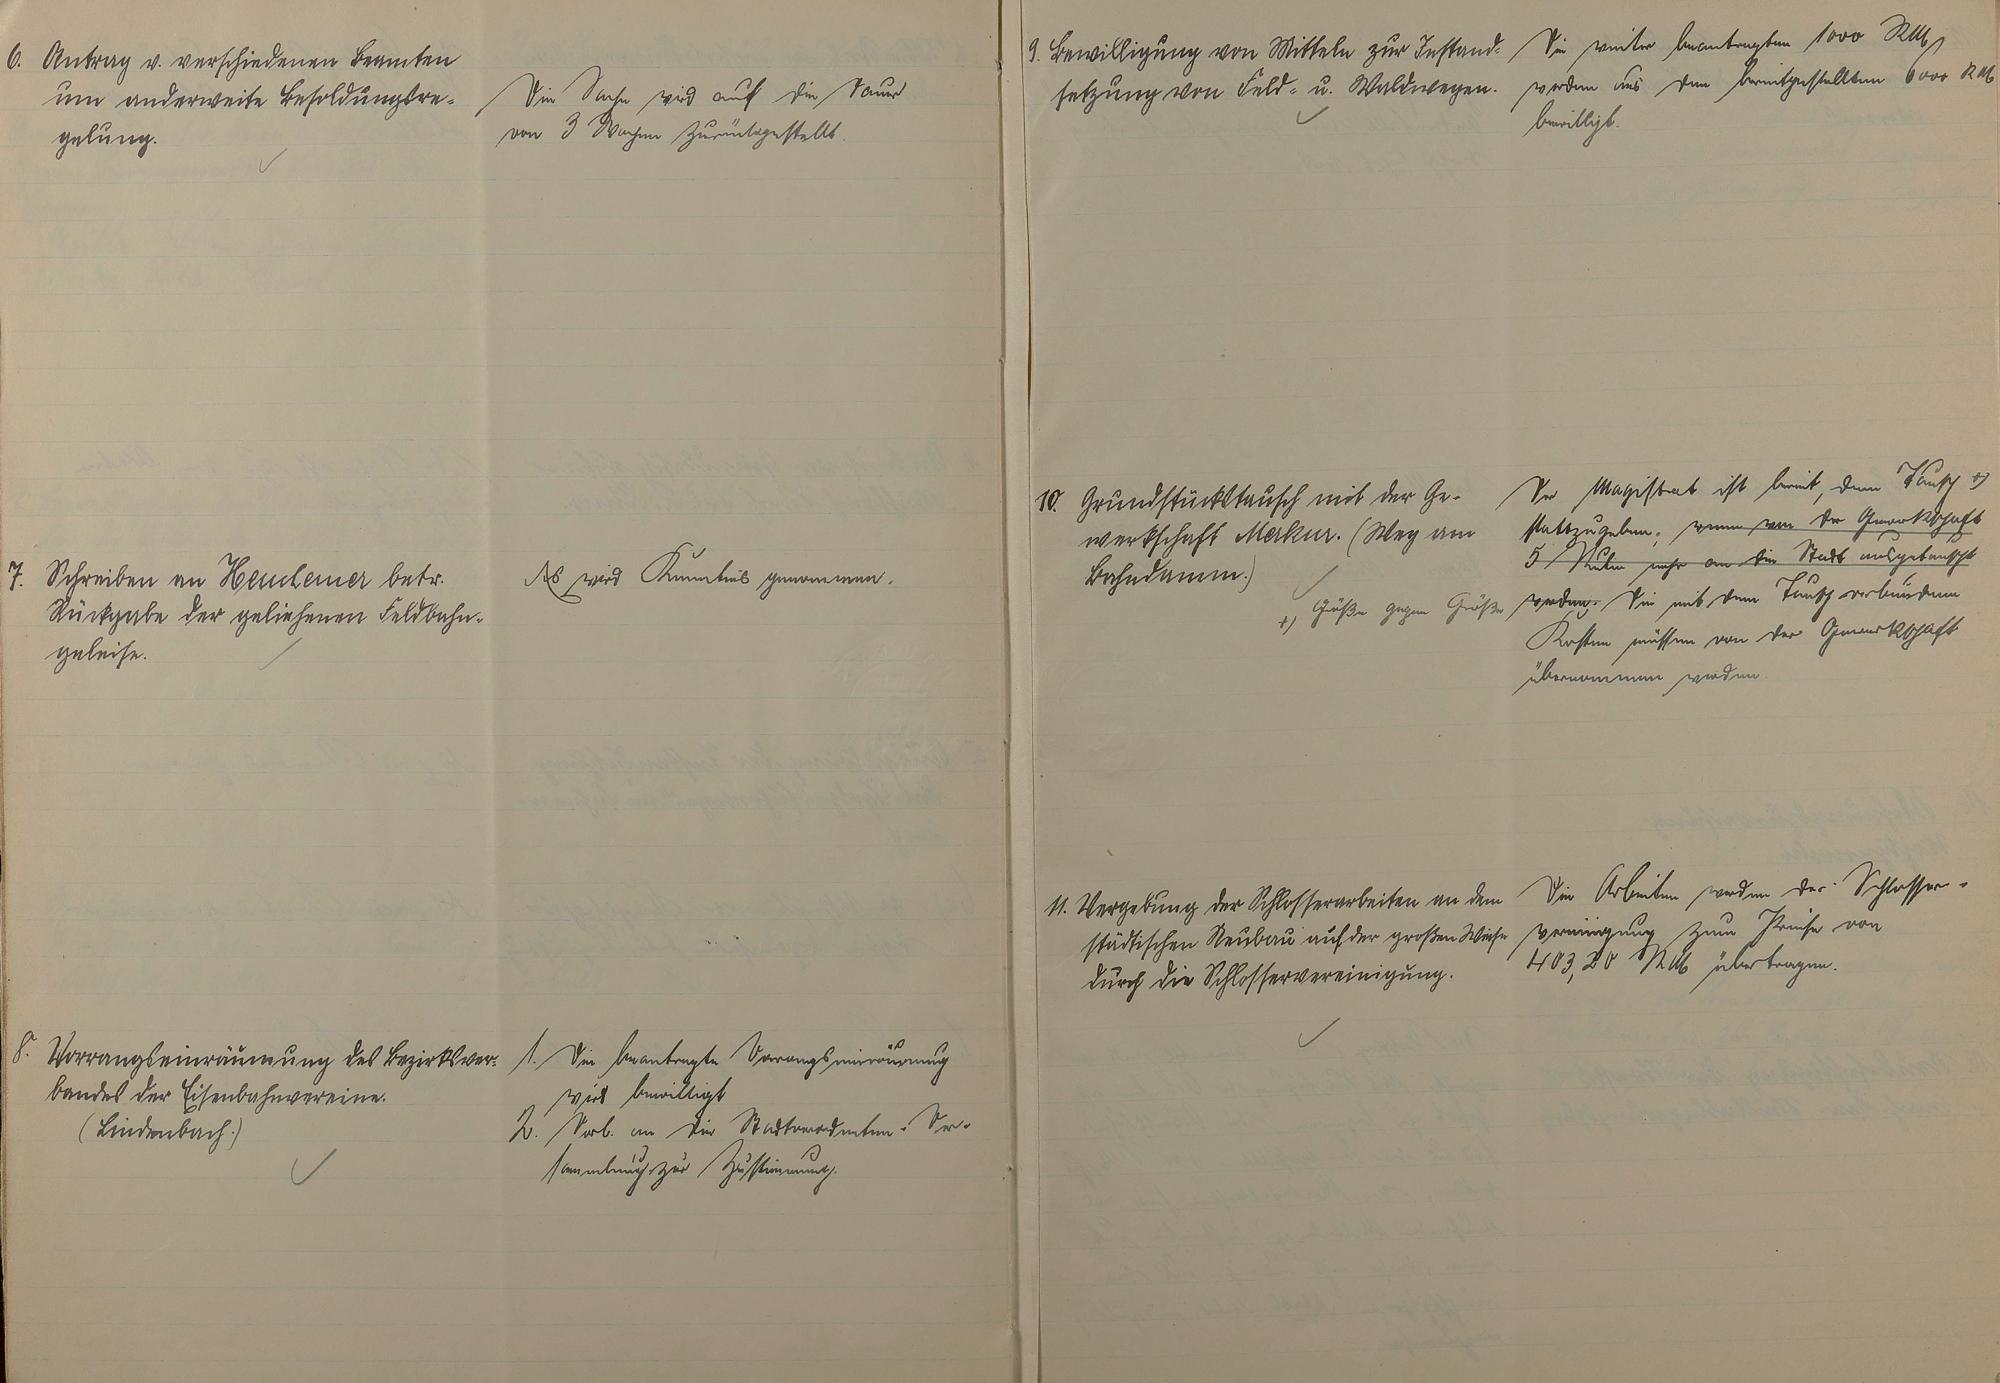 6. Antrag v. verschiedenen Beamten
um anderweite Besoldungsre-
gelung.
Die Sache wird auf die Dauer
von 3 Wochen zurückgestellt.
7. Schreiben an Heuckemer betr.
Rückgabe der geliehenen Feldbahn-
geleise.
Es wird Kenntnis genommen.
8. Vorrangseinräumung des Bezirksver-
bandes der Eisenbahnvereine.
(Lindenbach.)
1. Die beantragte Vorrangseinräumung
wird bewilligt
2. Vorl. an die Stadtverordneten-Ver-
sammlung zur Zustimmung.
9. Bewilligung von Mitteln zur Instand-
setzung von Feld- u. Waldwegen.
Die weiter beantragten 1000 RM
werden aus den bereitgestellten 6000 RM
bewilligt.
10. Grundstückstausch mit der Ge-
werkschaft Merkur. (Weg am
Bahndamm.)
+) Größe gegen Größe
Der Magistrat ist bereit, dem Tausch +)
stattzugeben, wenn von der Gewerkschaft
5 Ruten mehr an die Stadt ausgetauscht
werden. Die mit dem Tausch verbundenen
Kosten müssen von der Gewerkschaft
übernommen werden.
11. Vergebung der Schlosserarbeiten an dem
städtischen Neubau auf der großen Wiese
durch die Schlosservereinigung.
Die Arbeiten werden der Schlosser-
vereinigung zum Preise von
403,20 RM übertragen.